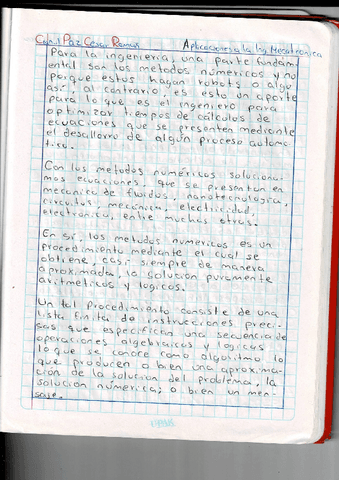 Canul Paz Cesar Roman Aplicaciones a la Ing. Mecatronica
Para la ingenieria, una parte fundam-
ental son los metodos numericos y no
porque estos hagan robots o algo
así, al contrario, es esto un aporte
para lo que es el ingeniero para
optimizar tiempos de cálculos de
ecuaciones que se presenten mediante
el desallorro de algún proceso automa-
tico.
Con los metodos numéricos soluciona-
mos ecuaciones, que se presentan en
mecanica de fluidos, nanotecnologica,
circuitos, mecánica, electricidad,
electronica, entre muchas otras.
En sí, los metodos numericos es un
procedimiento mediante el cual se
obtiene, casi siempre de manera
aproximada, la solución puramente
aritmeticos y logicos.
Un tal procedimiento consiste de una
lista finita de instrucciones preci-
sas que especifican una secuencia de
operaciones algebraicas y logicas
lo que se conoce como algoritmo lo
que producen o bien una aproxima-
ción de la solucion del problema, la
solucion numerica; o bien un men-
saje.